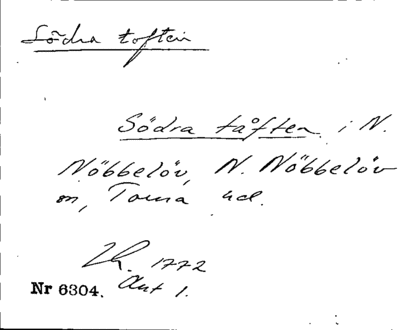 Södra toften
Södra tåften i N.
Nöbbelöv, N. Nöbbelöv
sn, Torna hd.
Lh. 1772
Akt 1.
Nr 6304.